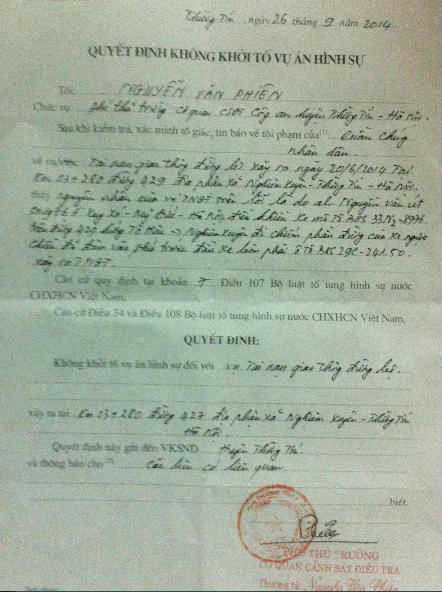 Thường Tín, ngày 26 tháng 9 năm 2014.
QUYẾT ĐỊNH KHÔNG KHỞI TỐ VỤ ÁN HÌNH SỰ
Tôi: NGUYỄN VĂN PHIÊN
Chức vụ: phó thủ trưởng cơ quan CSĐT Công an huyện Thường Tín - Hà Nội.
Sau khi kiểm tra, xác minh tố giác, tin báo về tội phạm của(1) quần chúng
nhân dân.
về vụ việc Tai nạn giao thông đường bộ xảy ra ngày 20/6/2014 Tại
Km 03+280 đường 429 địa phận xã Nghiêm Xuyên - Thường Tín - Hà Nội.
nguyên nhân của vụ TNGT trên lỗi là do a/ Nguyễn Văn
Hà Nội, điều khiển xe mô tô BKS
trên đường 429 hướng Tô Hiệu -> Nghiêm Xuyên đi chiều phần đường của xe người
chiều đi đâm vào phía trước đầu xe bên phải ô tô BKS 29C-241.50.
xảy ra TNGT.
Căn cứ quy định tại khoản 7 Điều 107 Bộ luật tố tụng hình sự nước
CHXHCN Việt Nam.
Căn cứ Điều 34 và Điều 108 Bộ luật tố tụng hình sự nước CHXHCN Việt Nam,
QUYẾT ĐỊNH:
Không khởi tố vụ án hình sự đối với vụ Tai nạn giao thông đường bộ.
xảy ra tại Km 03+280 đường 427 địa phận xã Nghiêm Xuyên - Thường Tín
Hà Nội.
Quyết định này gửi đến VKSND huyện Thường Tín
và thông báo cho(2) các bên có liên quan
biết.
PHÓ THỦ TRƯỞNG
CƠ QUAN CẢNH SÁT ĐIỀU TRA
Thượng tá Nguyễn Văn Phiên